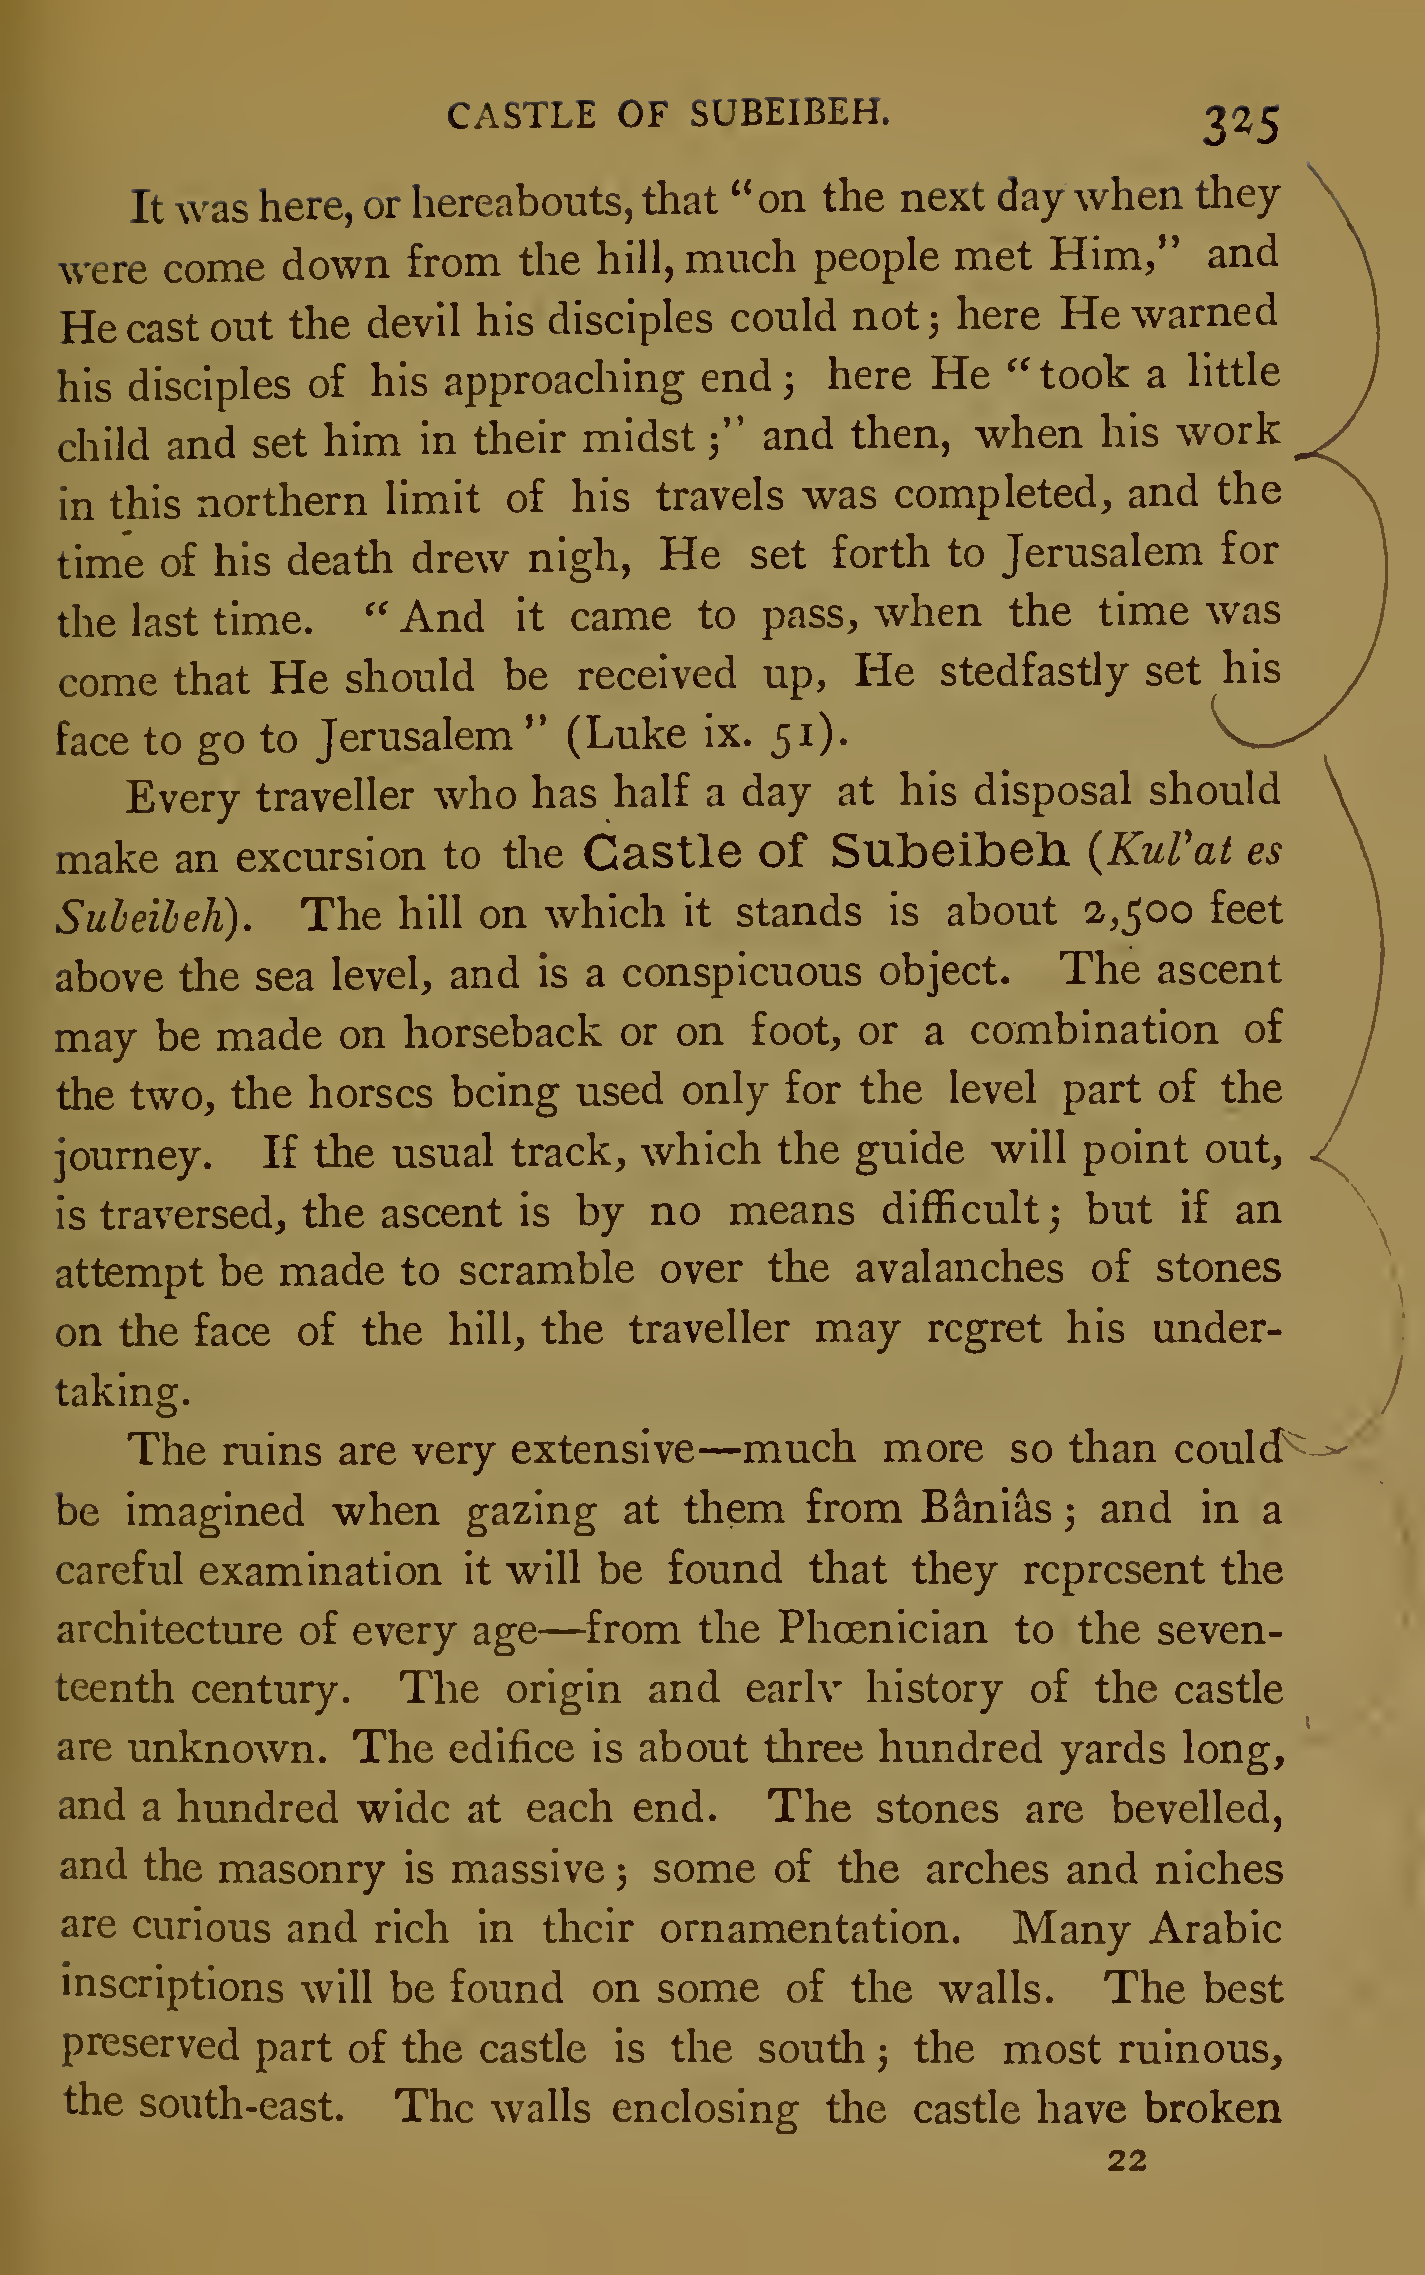 CASTLE OF SUBEIBEH. 325
It was here, or hereabouts, that “on the next day when they
were come down from the hill, much people met Him,” and
He cast out the devil his disciples could not; here He warned
his disciples of his approaching end; here He “took a little
child and set him in their midst;” and then, when his work
in this northern limit of his travels was completed, and the
time of his death drew nigh, He set forth to Jerusalem for
the last time. “And it came to pass, when the time was
come that He should be received up, He stedfastly set his
face to go to Jerusalem” (Luke ix. 51).
Every traveller who has half a day at his disposal should
make an excursion to the Castle of Subeibeh (Kul’at es
Subeibeh). The hill on which it stands is about 2,500 feet
above the sea level, and is a conspicuous object. The ascent
may be made on horseback or on foot, or a combination of
the two, the horses being used only for the level part of the
journey. If the usual track, which the guide will point out,
is traversed, the ascent is by no means difficult; but if an
attempt be made to scramble over the avalanches of stones
on the face of the hill, the traveller may regret his under-
taking.
The ruins are very extensive—much more so than could
be imagined when gazing at them from Bâniâs; and in a
careful examination it will be found that they represent the
architecture of every age—from the Phœnician to the seven-
teenth century. The origin and early history of the castle
are unknown. The edifice is about three hundred yards long,
and a hundred wide at each end. The stones are bevelled,
and the masonry is massive; some of the arches and niches
are curious and rich in their ornamentation. Many Arabic
inscriptions will be found on some of the walls. The best
preserved part of the castle is the south; the most ruinous,
the south-east. The walls enclosing the castle have broken
22